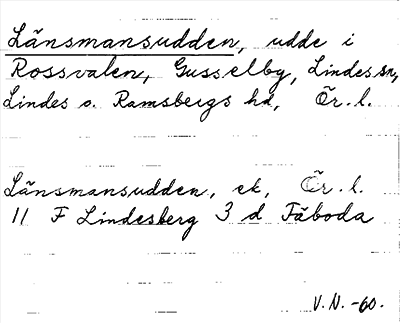 Länsmansudden, udde i
Rossvalen, Gusselby, Lindes sn,
Lindes o. Ramsbergs hd, Ör. l.
Länsmansudden, ek, Ör. l.
11 F Lindesberg 3 d Fäboda
V.N. -60.